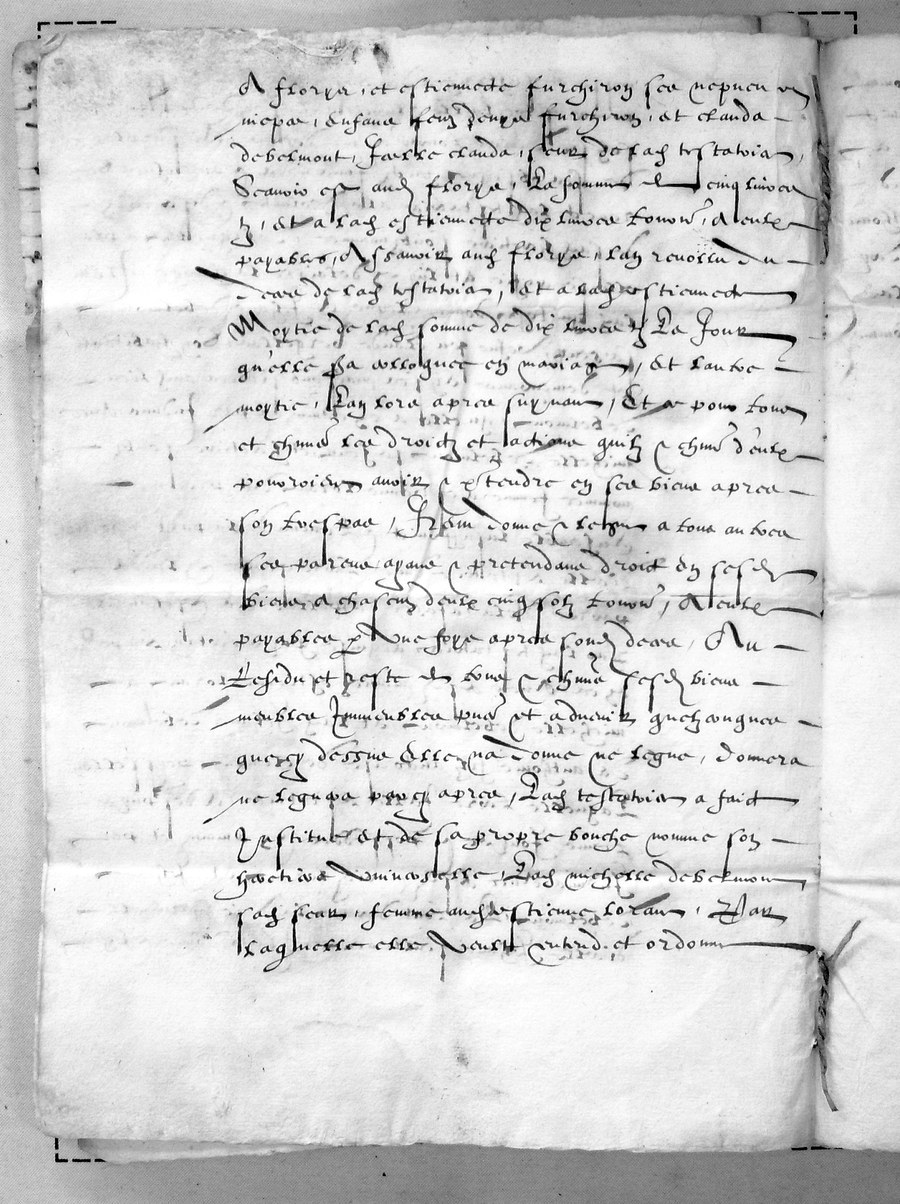 A florye, et estiennecte furchiron ses nepveu et
niepce, enfans feuz denys furchiron, et clauda
debelmont, Icelle clauda, seur de lad testatrix,
Scavoir est aud florye, La somme de cinq livres
tz, et a lad estiennecte dix livres tournois, A eulx
payables, Assavoir aud florye, lan revollu du
deces de lad testatrix, Et a lad estiennecte
Moytie de lad somme de dix livres tz Le Jour
quelle sera colloquee en mariage, et lautre
moytie, Lan lors apres suyvant, Et ce pour tous
et chascuns les droictz et actions quilz et chascun deulx
pourroient avoir et pretendre en ses biens apres
son trespas, Item donne et legue a tous autres
ses parens ayans et pretendans droict en sesd
biens a chascun deulx cinq solz tournois, A eulx
payables p une foys apres sond deces, Au
Residu et reste de tous et chascuns sesd biens
meubles Immeubles presens et advenir quelzconques
quecy dessus elle na donne ne legue, donnera
ne leguera pary apres, Lad testatrix a faict
Institue et de sa propre bouche nomme son
heretiere universelle, Lad michelle debelmont
sad seur, femme aud estienne loran, Par
laquelle elle veult entend et ordonne